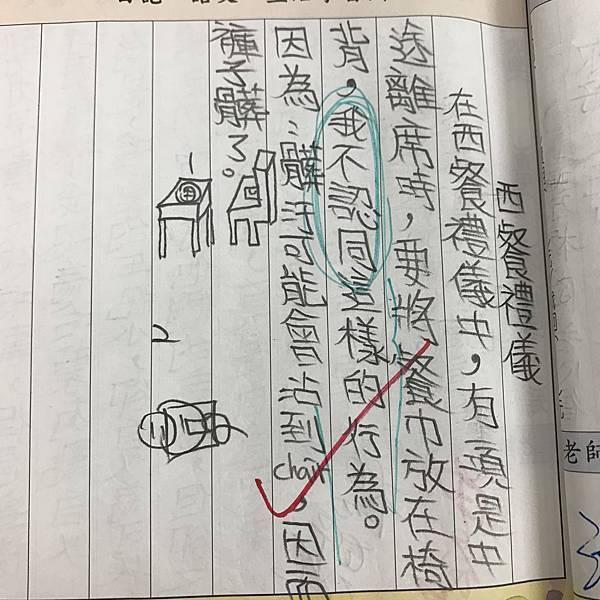 西餐禮儀
在西餐禮儀中，有一項是中
途離席時，要將餐巾放在椅
背，我不認同這樣的行為。
因為：髒汙可能會沾到chair，因而
褲子髒了。
1
2
老師